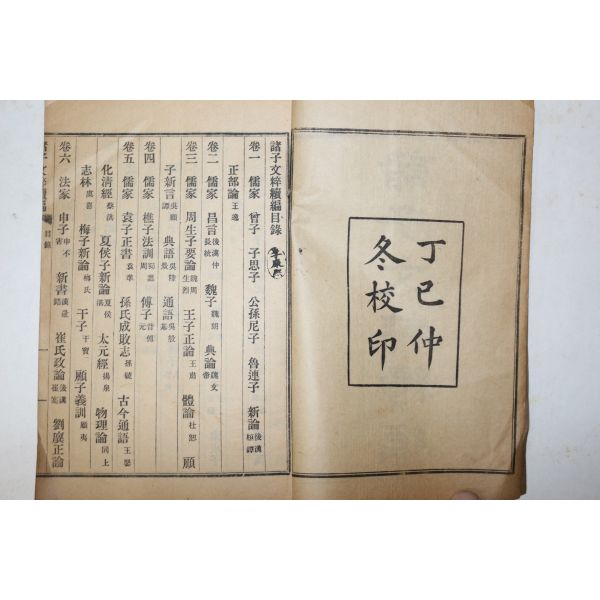 丁巳仲
冬校印
諸子文粹續編目錄
卷一 儒家 曾子 子思子 公孫尼子 魯連子 新論 後漢桓譚
正部論 王逸
卷二 儒家 昌言 後漢仲長統 魏子 魏朗 典論 魏文帝
卷三 儒家 周生子要論 魏周生烈 王子正論 王肅 體論 杜恕 顧
子新言 吳顧譚 典語 吳陸景 通語 吳殷基
卷四 儒家 譙子法訓 蜀譙周 傅子 晉傅元
卷五 儒家 袁子正書 袁準 孫氏成敗志 孫毓 古今通語 王嬰
化清經 蔡洪 夏侯子新論 夏侯湛 太元經 揚泉 物理論 同上
志林 虞喜 梅子新論 梅氏 干子 干寶 顧子義訓 顧夷
卷六 法家 申子 申不害 新書 漢鼂錯 崔氏政論 後漢崔寔 劉廙正論
諸子文粹續編 目錄 一